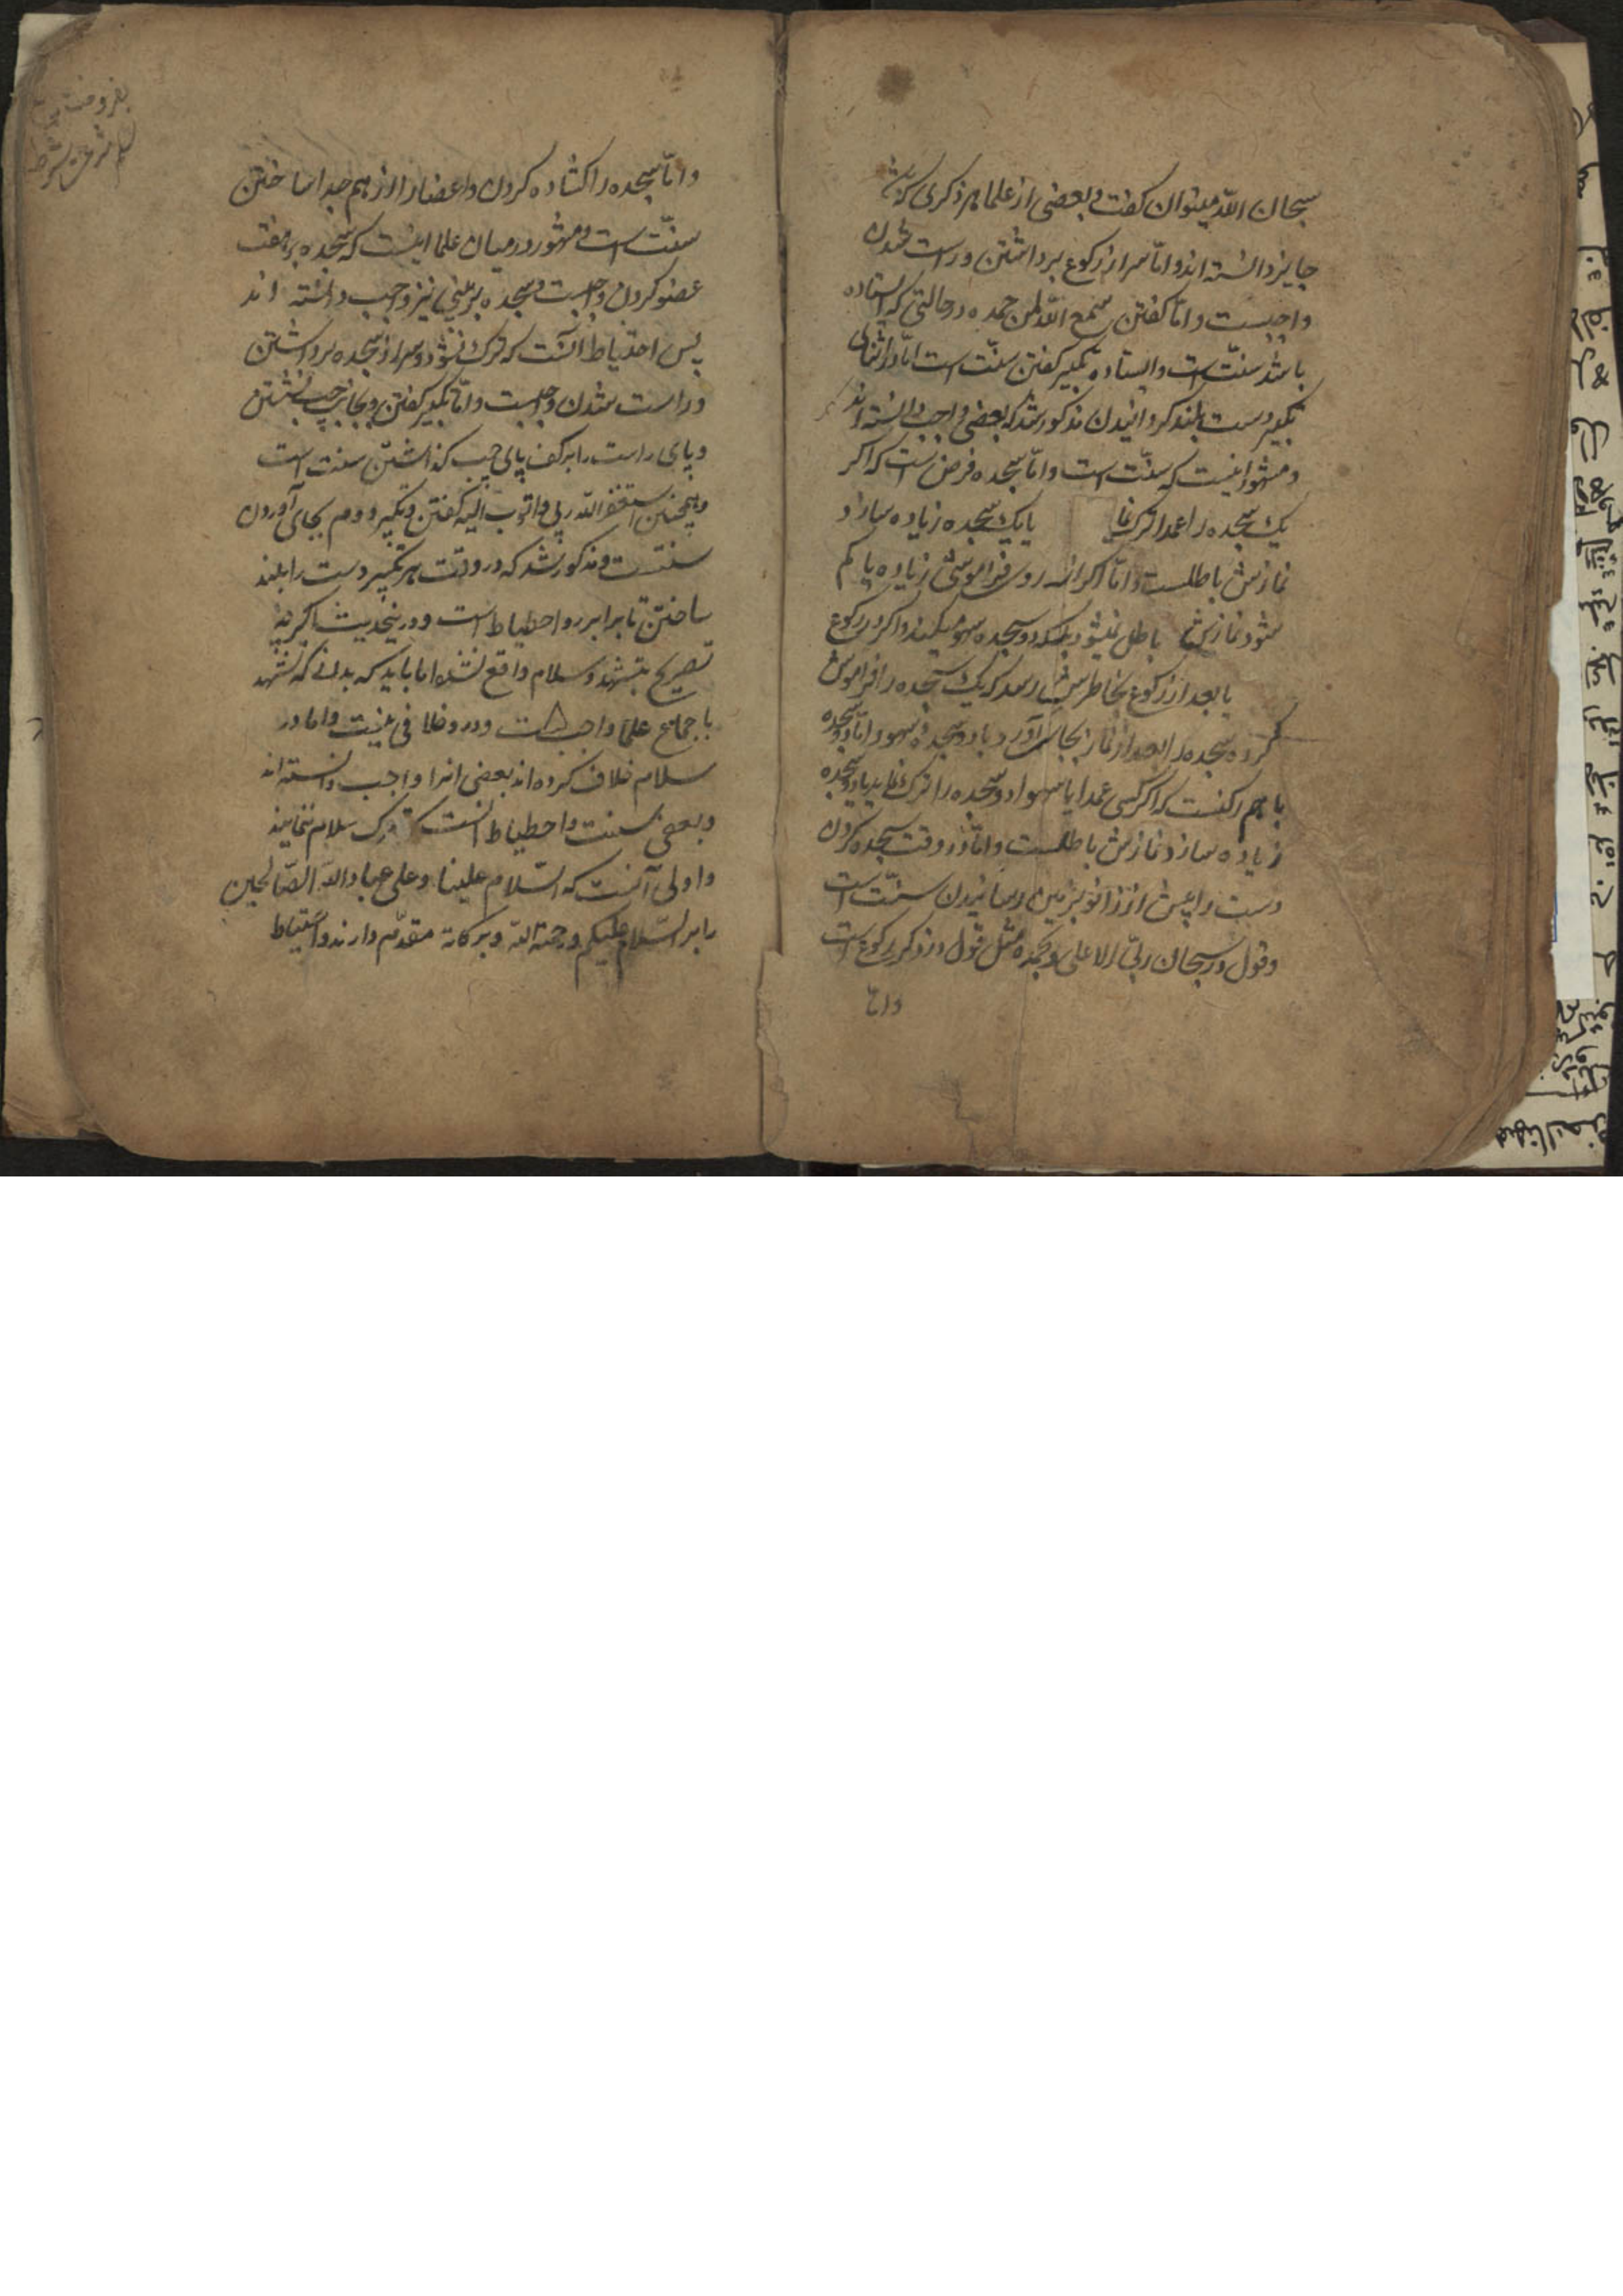 سبحان اللّه میتوان کفت و بعضی از علما هر ذکری که باشد
جایز دانسته اند و امّا سر از رکوع برداشتن و راست شدن
واجبست و امّا کفتن سمع اللّه لمن حمده در حالتی که ایستاده
باشد سنّت است و ایستاده تکبیر کفتن سنّت است امّا در اثنای
تکبیر دست بلند کردانیدن مذکور شد که بعضی واجب دانسته اند
و مشهور اینست که سنّت است و امّا سجده فرض است که اکر
یک سجده را عمدا ترک نما یا یک سجده زیاده سازد
نمازش باطلست و امّا اکر از روی فراموشی زیاده یا کم
شود نمازش باطل نمیشود بلکه دو سجده سهو میکند و اکر در رکوع
یا بعد از رکوع بخاطرش رسد که یک سجده را فراموش
کرده سجده را بعد از نماز بجای آورد با دو سجدهٔ سهو و امّا دو سجده
با هم رکنست که اکر کسی عمدا یا سهوا دو سجده را ترک نماید یا دو سجده
زیاده سازد نمازش باطلست و امّا در وقت سجده کردن
دست را پیش از زانو بزمین رسانیدن سنّت است
و قول در سبحان ربّی الاعلی و بحمده مثل قول در ذکر رکوع است
وامّا
و امّا سجده را کشاده کردن و اعضا را از هم جدا ساختن
سنّت است و مشهور در میان علما اینست که سجده بر هفت
عضو کردن واجبست و سجده بر بینی نیز واجب دانسته اند
پس احتیاط آنست که ترک نشود و سر از سجده برداشتن
و راست شدن واجبست و امّا تکبیر کفتن و بجانب چپ نشستن
و پای راست را بر کف پای چپ کذاشتن سنت است
و همچنین استغفر اللّه ربی و اتوب الیه کفتن و تکبیر دوم بجای آوردن
سنتست و مذکور شد که در وقت هر تکبیر دست را بلند
ساختن تا برابر رو احتیاط است و در ینحدیث اکرچه
تصریح بتشهد و سلام واقع نشده اما باید که بدانی که تشهد
باجماع علما واجبست و در و خلافی نیست و اما در
سلام خلاف کرده اند بعضی انرا واجب دانسته اند
و بعضی سنت و احتیاط آنست که ترک سلام ننمایند
و اولی آنست که السّلام علینا و علی عباد اللّه الصّالحین
را بر السّلام علیکم و رحمة اللّه و برکاته مقدّم دارند و احتیاط